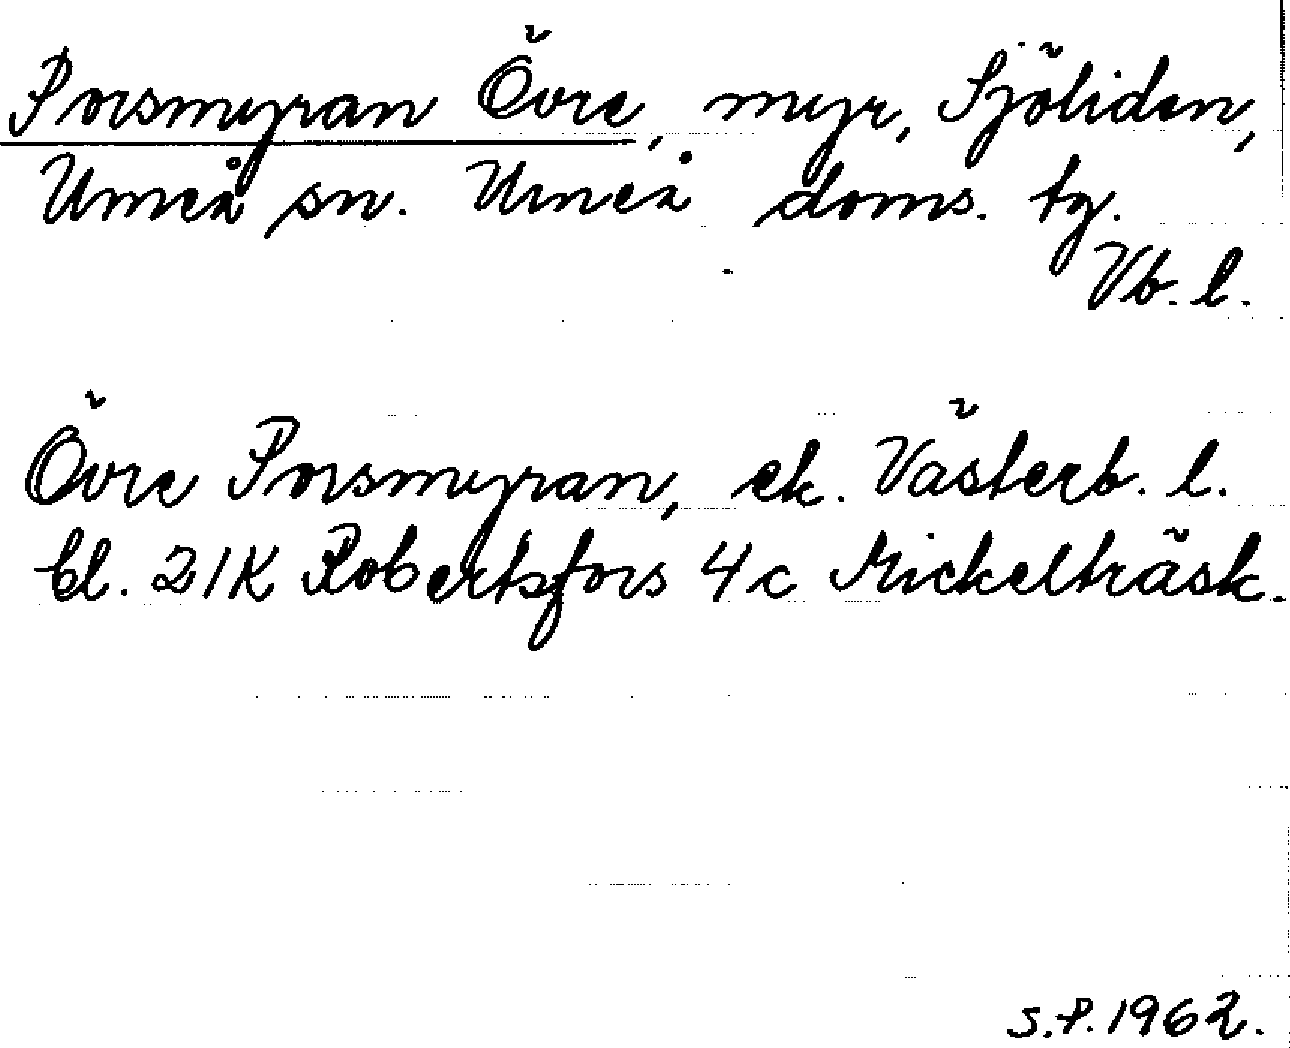 Porsmyran Övre, myr, Sjöliden,
Umeå sn. Umeå doms. tg.
Vb. l.
Övre Porsmyran, ek. Västerb. l.
bl. 21K Robertsfors 4c Mickelträsk.
S.P. 1962.